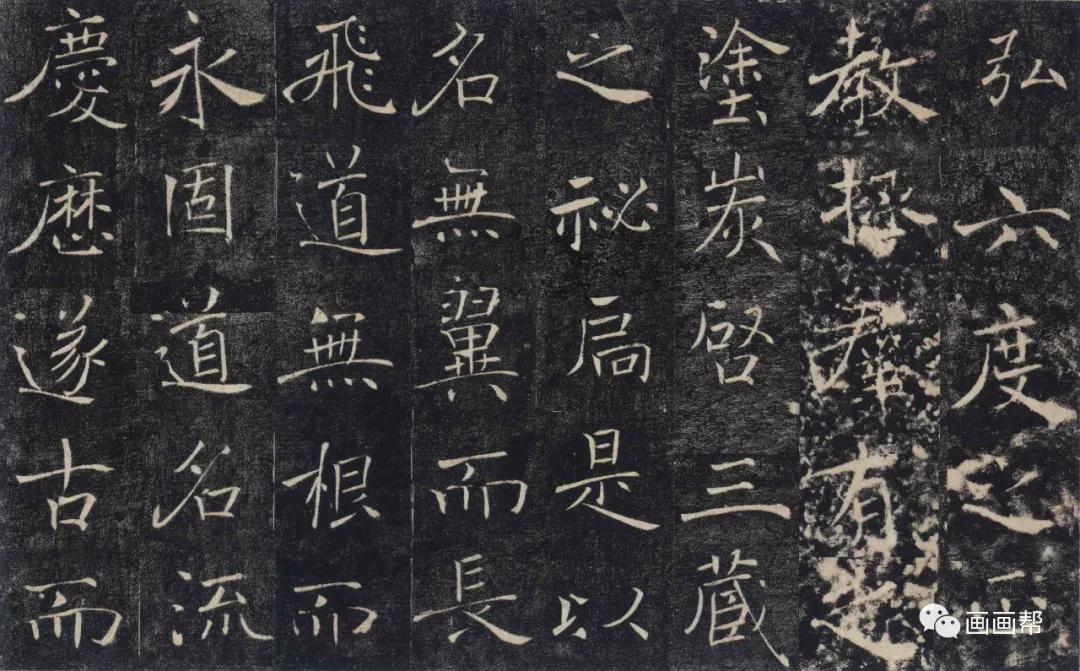 弘六度之正
教拯羣有之
塗炭啓三藏
之祕扃是以
名無翼而長
飛道無根而
永固道名流
慶歷遂古而
画画帮